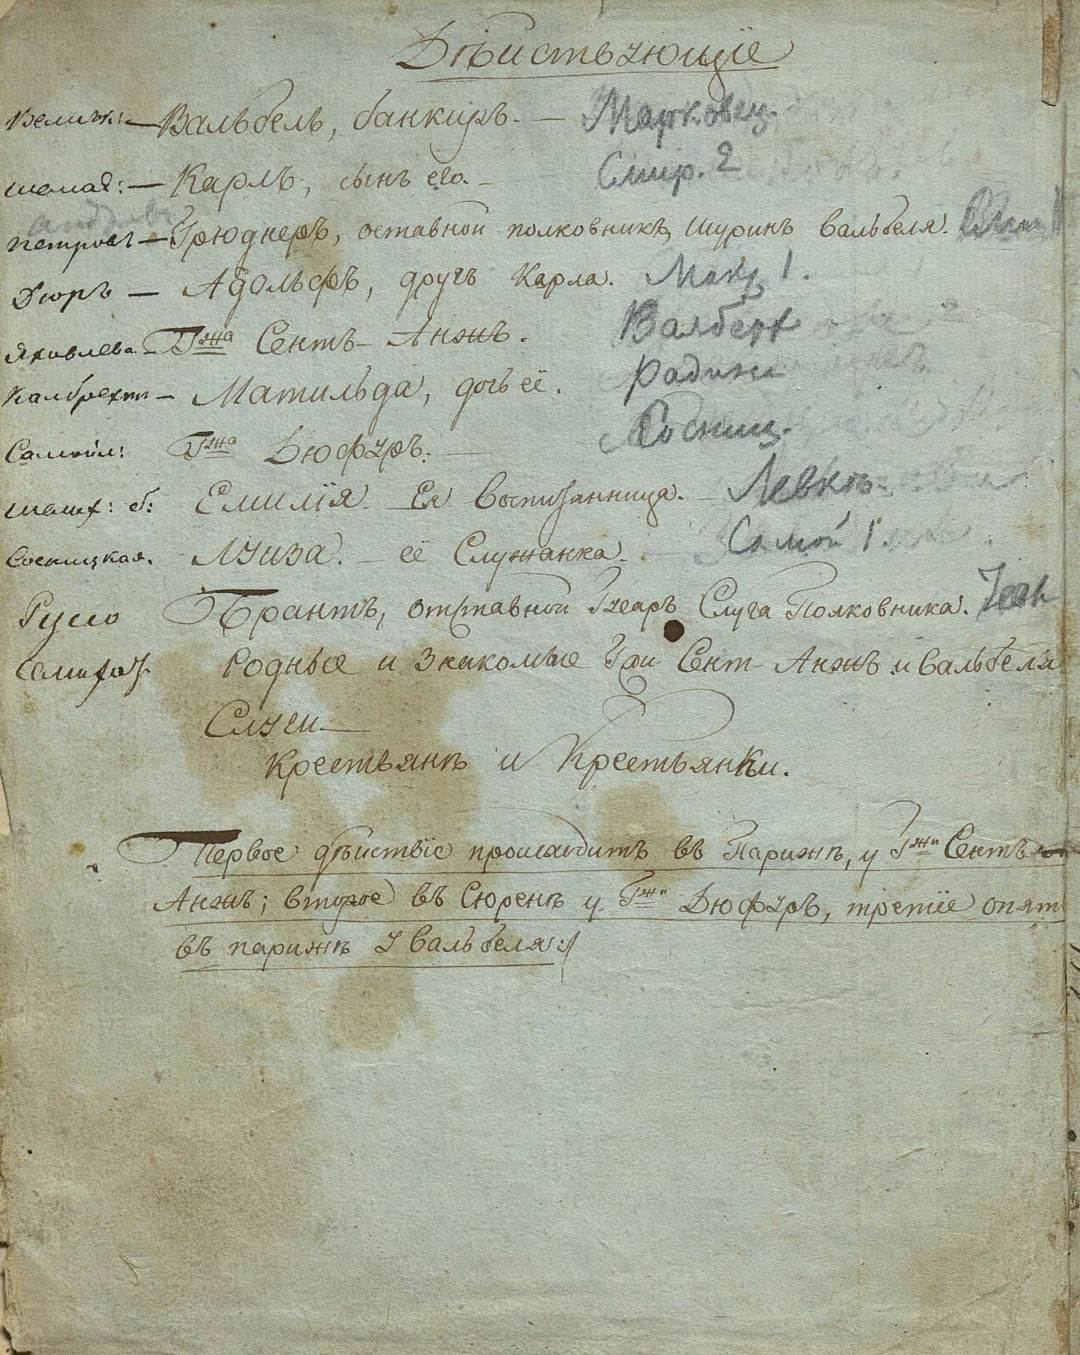 Дѣйствующіе
Велич: — Вальбель, банкиръ. — Марковец.
шемад: — Карлъ, сынъ его. — Смир. 2
Петровъ — Грюднеръ, оставной полковникъ, шуринъ Вальбеля.
Дюръ — Адольфъ, другъ Карла. Макс 1.
Яковлева — Гжа Сентъ-Анжъ. Валберх
Калбрехтъ — Матильда, дочь её.
Самойл: Гжа Дюфуръ. — Сосниц.
шелих: б: Емилія. Ея воспитанница. — Левкѣ
Сосницкая. Луиза. — её Служанка. Самой 1
Руссо Брантъ, отставной Гусаръ Слуга Полковника.
Родные и Знакомые Гжи Сент-Анжъ и Вальбеля
Слуги —
Крестьянѣ и Крестьянки.
Первое дѣйствіе происходитъ въ Парижѣ, у Гжи Сентъ-
Анжъ; второе въ Сюренѣ у Гжи Дюфуръ, третіе опят
въ парижѣ у Вальбеля: